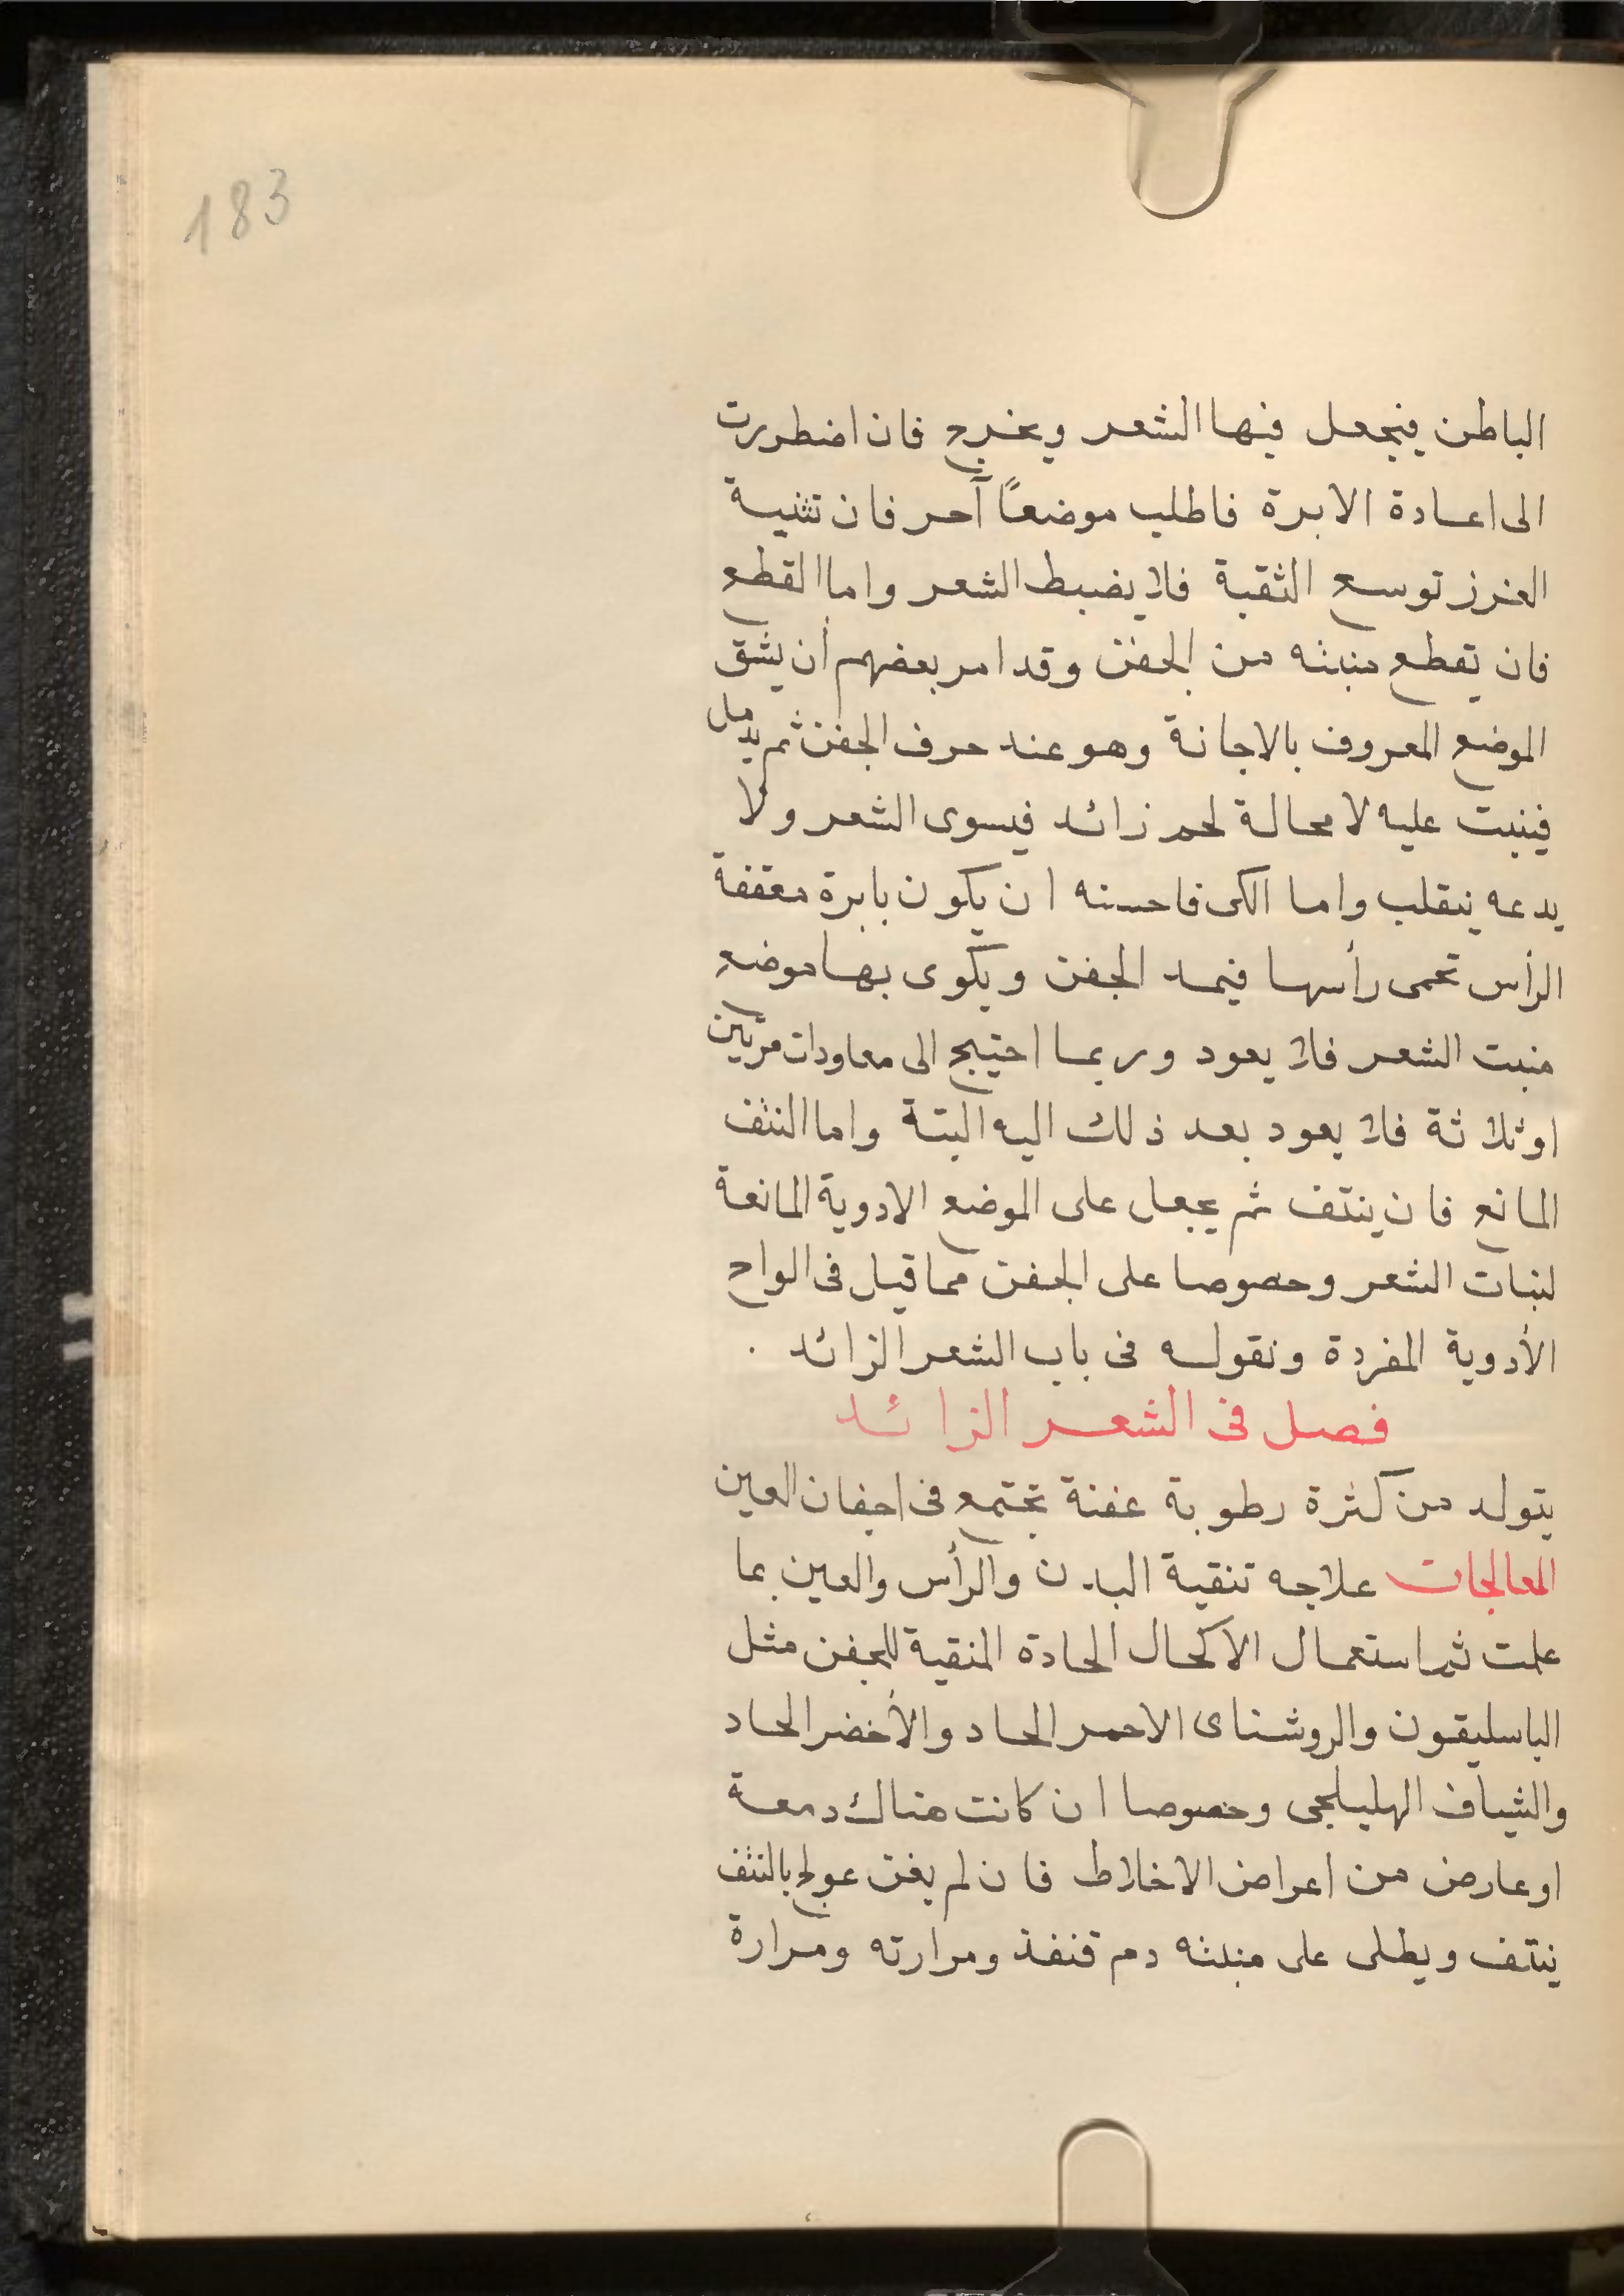 183
الباطن فيجعل فيها الشعر ويخرج فان اضطررت
الى اعادة الابرة فاطلب موضعًا آحر فان تثنية
الغرز توسع الثقبة فلا يضبط الشعر واما القطع
فان تقطع منبته من الجفن وقد امر بعضهم أن يشق
الموضع المعروف بالاجانة وهو عند حرف الجفن ثم يدمل
فينبت عليه لا محالة لحم زائد فيسوى الشعر ولا
يدعه ينقلب واما الكى فاحسنه ان يكون بابرة معقفة
الرأس تحمى رأسها فيمد الجفن ويكوى بها موضع
منبت الشعر فلا يعود وربما احتيج الى معاودات مرتين
او ثلاثة فلا يعود بعد ذلك اليه البتة واما النتف
المانع فان ينتف ثم يجعل على الموضع الادوية المانعة
لنبات الشعر وحصوصا على الجفن مما قيل فى الواح
الأدوية المفردة ونقوله فى باب الشعر الزائد .
فصل فى الشعر الزائد
يتولد من كثرة رطوبة عفنة تجتمع فى اجفان العين
المعالجات علاجه تنقية البدن والرأس والعين بما
علمت ثم استعمال الاكحال الحادة المنقية للجفن مثل
الباسليقون والروشناى الاحمر الحاد والأخضر الحاد
والشياف الهليلجى وخصوصا ان كانت هناك دمعة
او عارض من اعراض الاخلاط فان لم يغن عولج بالنتف
ينتف ويطلى على منبته دم قنفذ ومرارته ومرارة